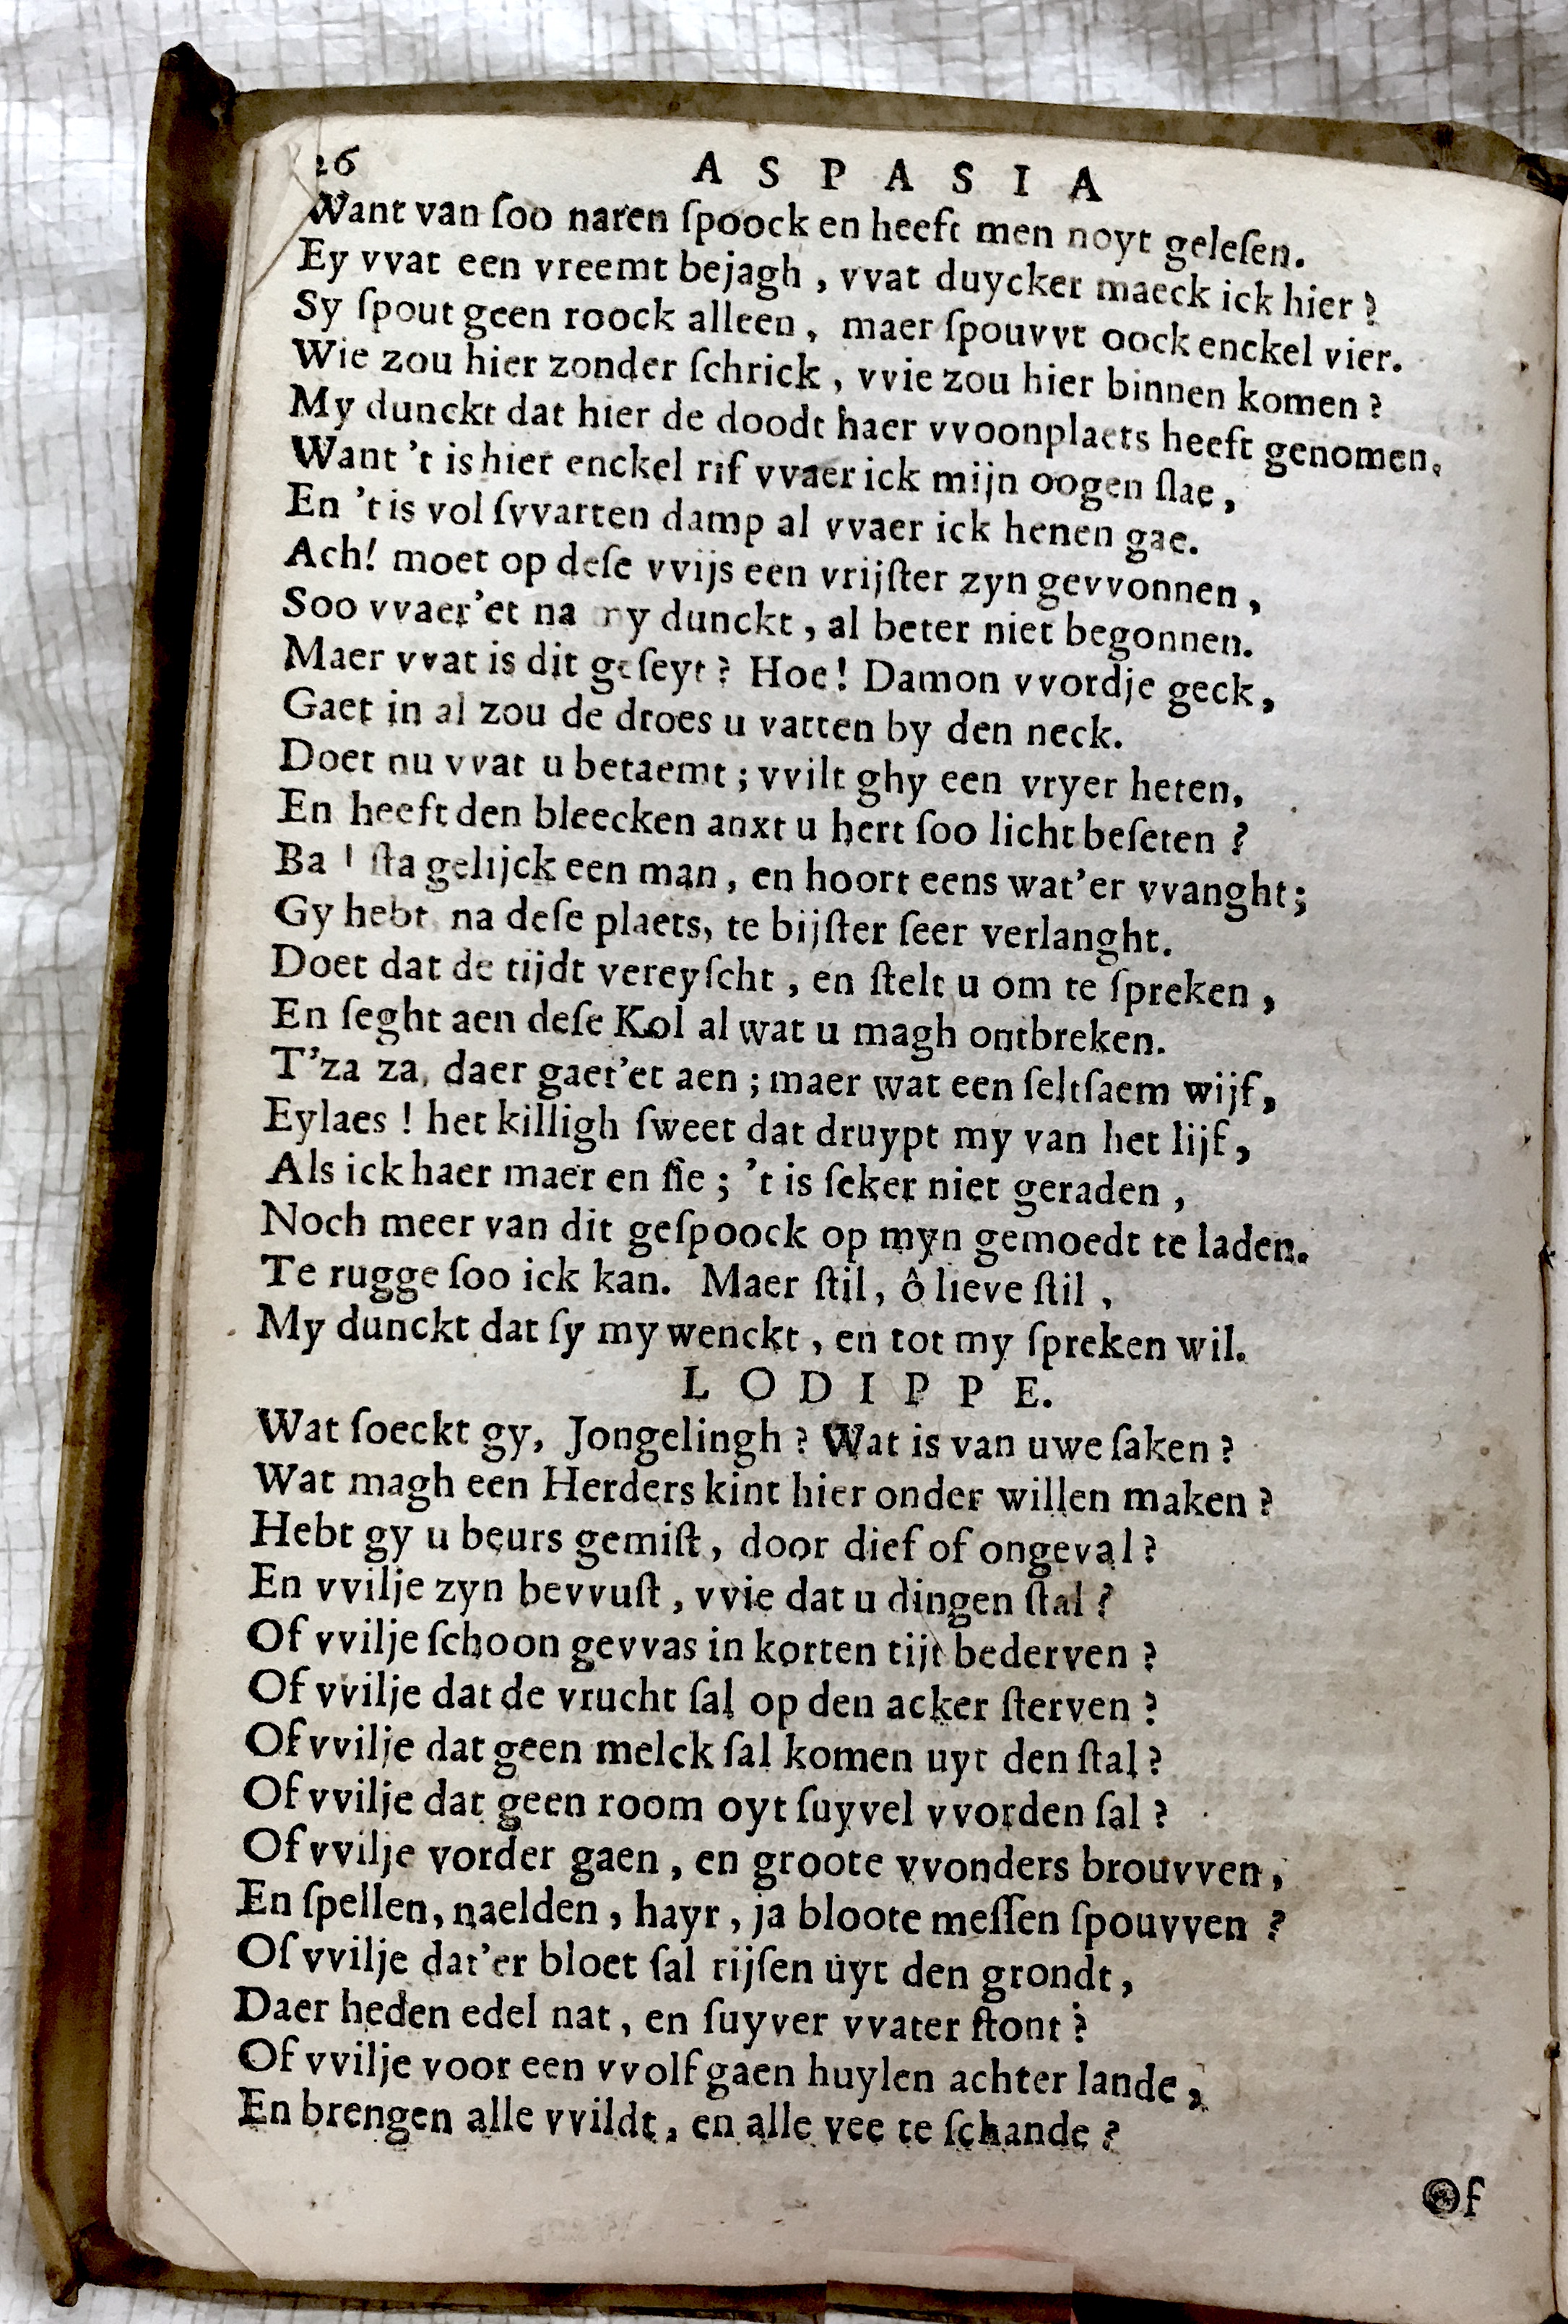 26 ASPASIA
Want van ſoo naren ſpoock en heeft men noyt geleſen.
Ey vvat een vreemt bejagh, vvat duycker maeck ick hier?
Sy ſpout geen roock alleen, maer ſpouvvt oock enckel vier.
Wie zou hier zonder ſchrick, vvie zou hier binnen komen?
My dunckt dat hier de doodt haer vvoonplaets heeft genomen.
Want 't is hier enckel rif vvaer ick mijn oogen ſlae,
En 't is vol ſvvarten damp al vvaer ick henen gae.
Ach! moet op deſe vvijs een vrijſter zyn gevvonnen,
Soo vvaer'et na my dunckt, al beter niet begonnen.
Maer vvat is dit geſeyt? Hoe! Damon vvordje geck,
Gaet in al zou de droes u vatten by den neck.
Doet nu vvat u betaemt; vvilt ghy een vryer heten,
En heeft den bleecken anxt u hert ſoo licht beſeten?
Ba! ſta gelijck een man, en hoort eens wat'er vvanght;
Gy hebt na deſe plaets, te bijſter ſeer verlanght.
Doet dat de tijdt vereyſcht, en ſtelt u om te ſpreken,
En ſeght aen deſe Kol al wat u magh ontbreken.
T'za za, daer gaet'et aen; maer wat een ſeltſaem wijf,
Eylaes! het killigh ſweet dat druypt my van het lijf,
Als ick haer maer en ſie; 't is ſeker niet geraden,
Noch meer van dit geſpoock op myn gemoedt te laden.
Te rugge ſoo ick kan. Maer ſtil, ô lieve ſtil,
My dunckt dat ſy my wenckt, en tot my ſpreken wil.
LODIPPE.
Wat ſoeckt gy, Jongelingh? Wat is van uwe ſaken?
Wat magh een Herders kint hier onder willen maken?
Hebt gy u beurs gemiſt, door dief of ongeval?
En vvilje zyn bevvuſt, vvie dat u dingen ſtal?
Of vvilje ſchoon gevvas in korten tijt bederven?
Of vvilje dat de vrucht ſal op den acker ſterven?
Of vvilje dat geen melck ſal komen uyt den ſtal?
Of vvilje dat geen room oyt ſuyvel vvorden ſal?
Of vvilje vorder gaen, en groote vvonders brouvven,
En ſpellen, naelden, hayr, ja bloote meſſen ſpouvven?
Of vvilje dat'er bloet ſal rijſen uyt den grondt,
Daer heden edel nat, en ſuyver vvater ſtont?
Of vvilje voor een vvolf gaen huylen achter lande,
En brengen alle vvildt, en alle vee te ſchande?
Of